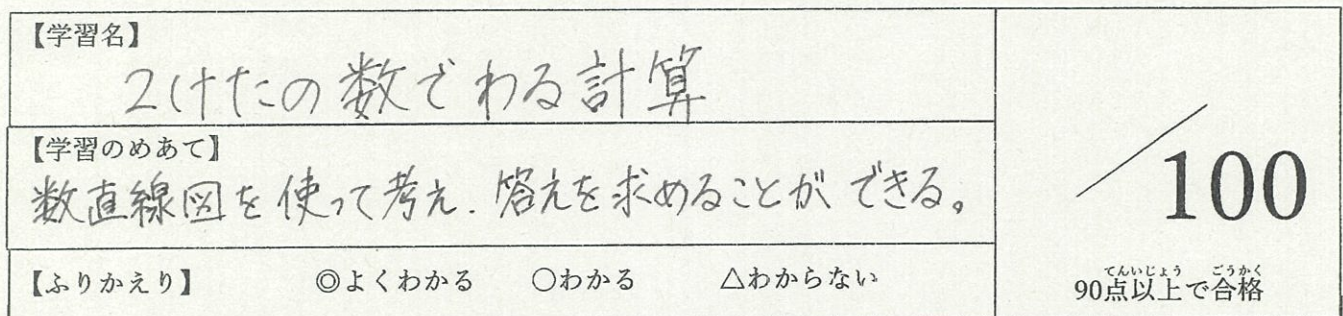 【学習名】
2けたの数でわる計算
【学習のめあて】
数直線図を使って考え、答えを求めることができる。
【ふりかえり】 ◎よくわかる ○わかる △わからない
/100
てんいじょう ごうかく
90点以上で合格